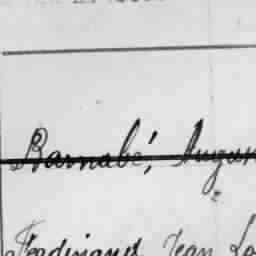 Barnabé, Augus
Ferdinand Jean Lo